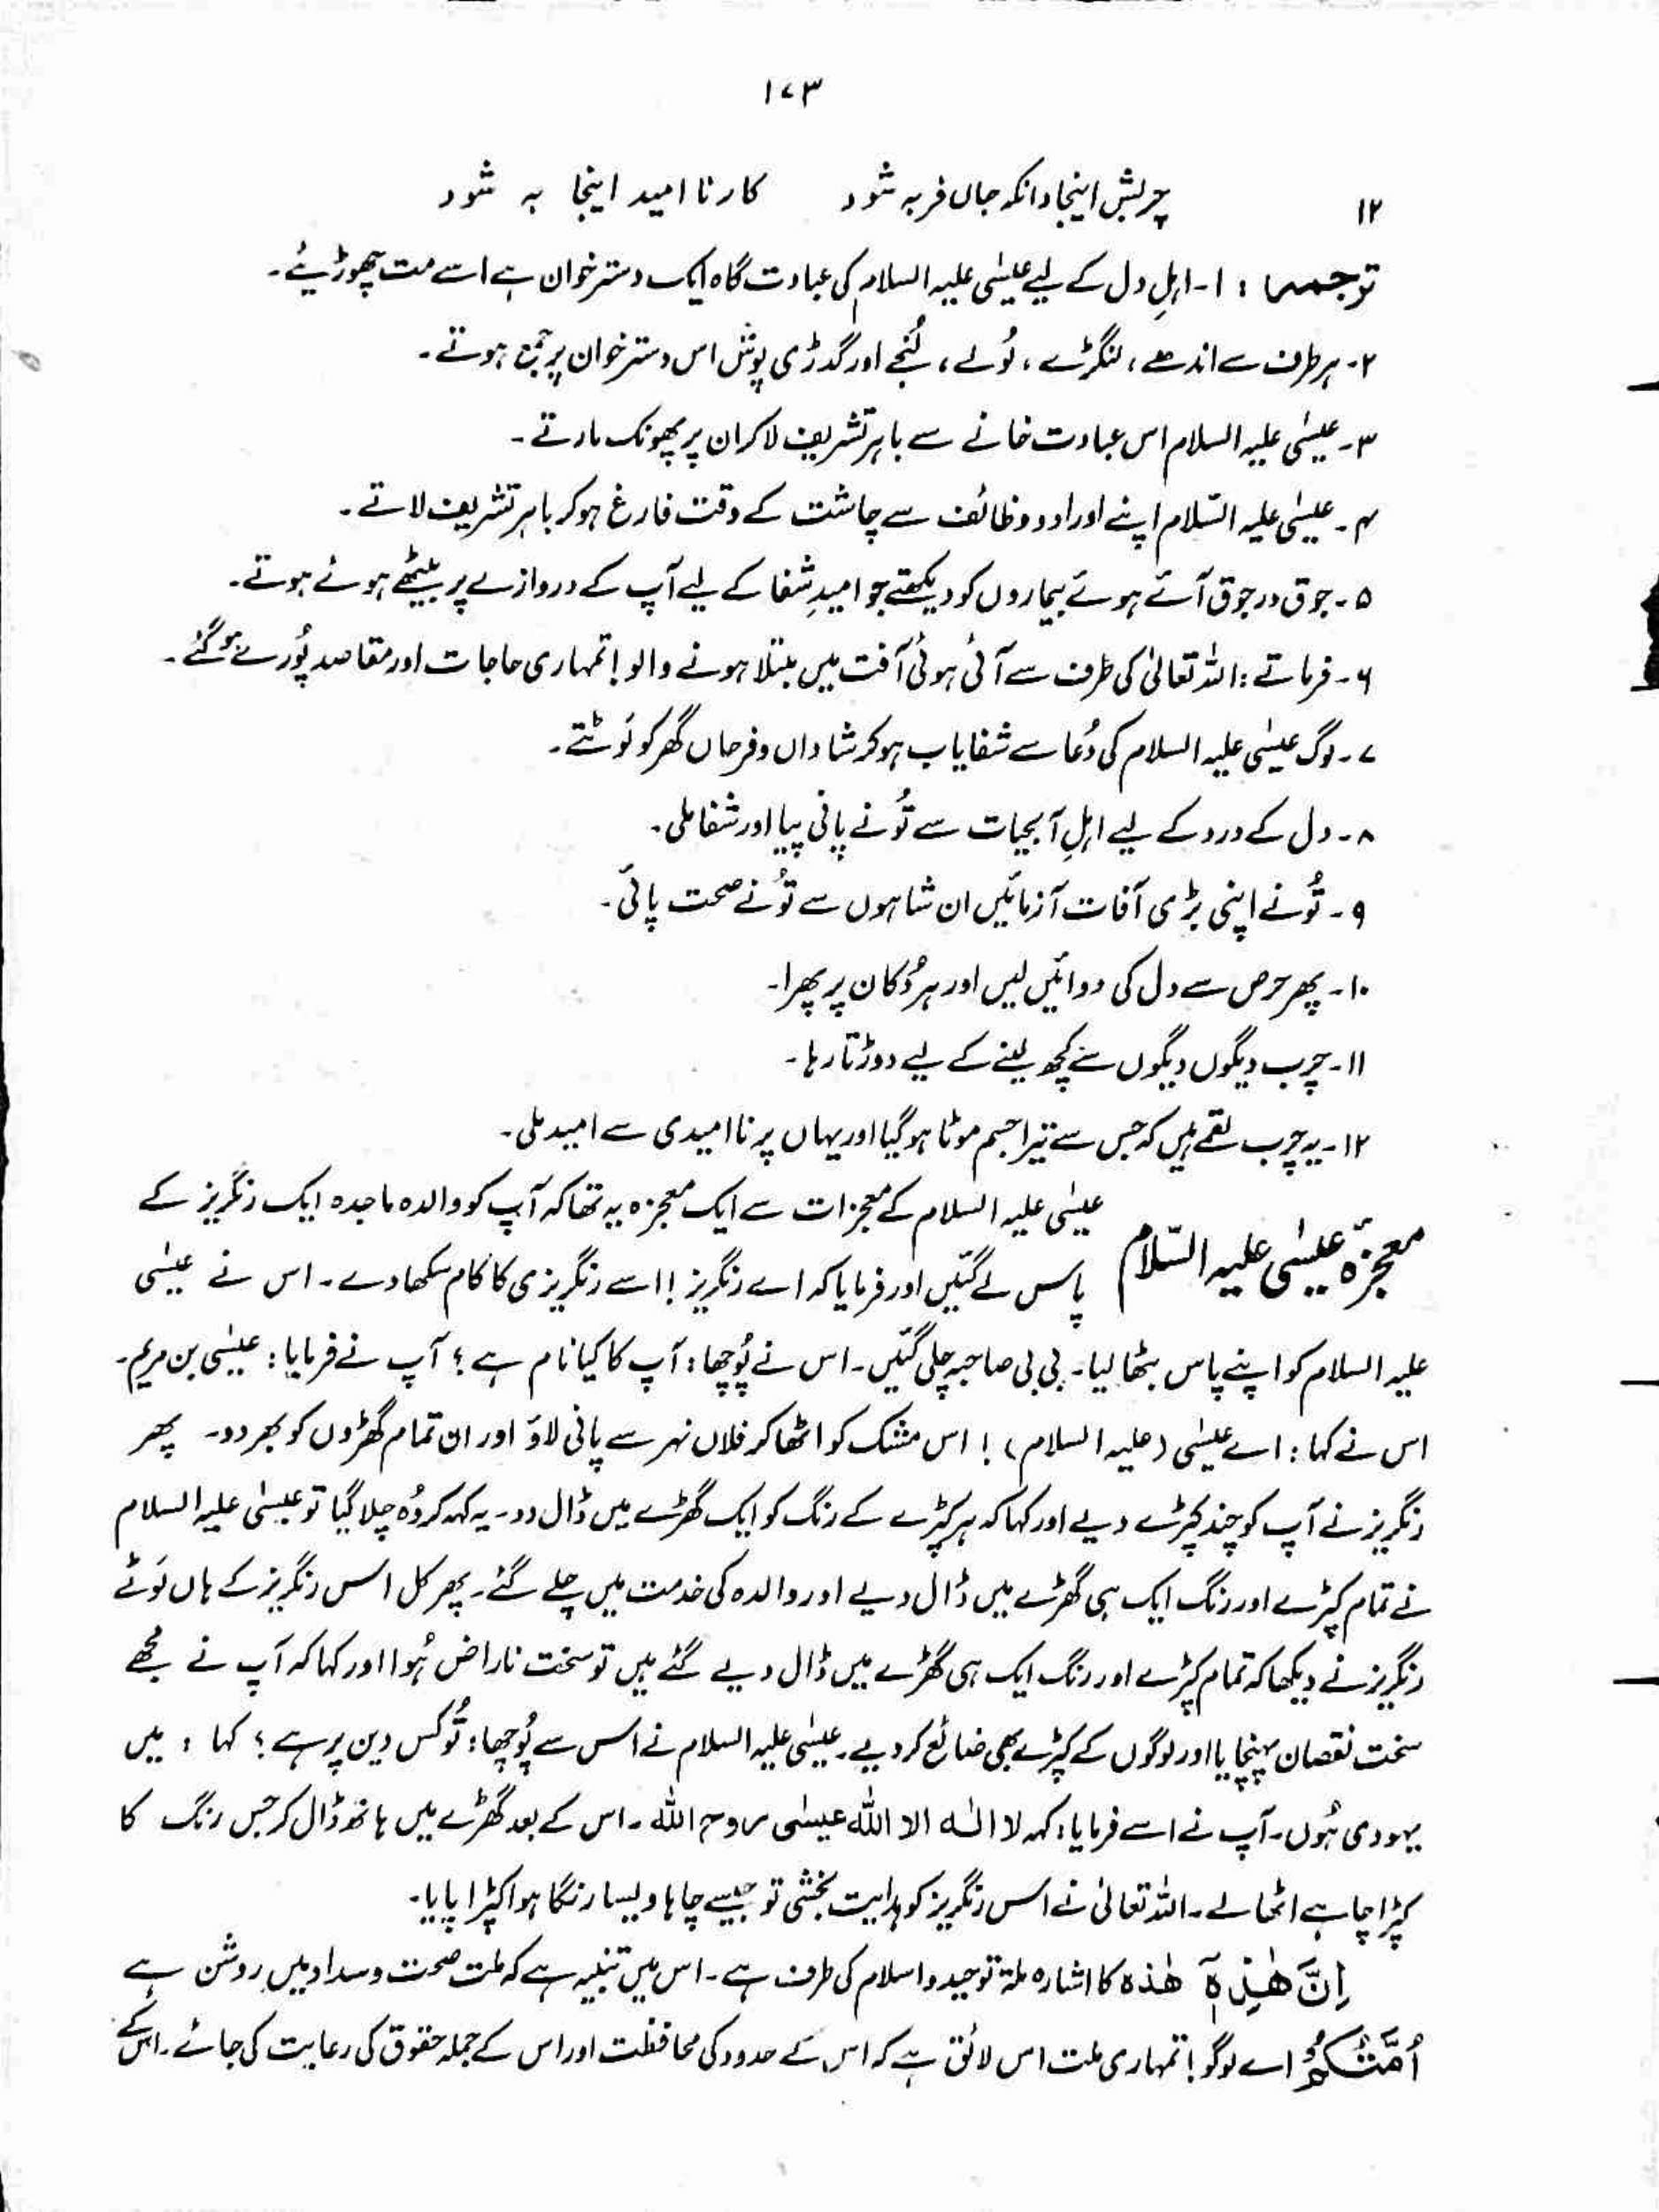 ۱۷۳
۱۲ چربش اینجا دانکہ جاں فربہ شود کار نا امید اینجا بہ شود
ترجمہ : ۱۔ اہلِ دل کے لیے عیسٰی علیہ السلام کی عبادت گاہ ایک دسترخوان ہے اسے مت چھوڑیئے۔
۲۔ ہر طرف سے اندھے ، لنگڑے ، لُولے ، لُنجے اور گدڑی پوش اس دسترخوان پر جمع ہوتے۔
۳۔ عیسٰی علیہ السلام اس عبادت خانے سے باہر تشریف لا کر ان پر پھونک مارتے۔
۴۔ عیسٰی علیہ السّلام اپنے اوراد و وظائف سے چاشت کے وقت فارغ ہو کر باہر تشریف لاتے۔
۵۔ جوق در جوق آئے ہوئے بیماروں کو دیکھتے جو امیدِ شفا کے لیے آپ کے دروازے پر بیٹھے ہوئے ہوتے۔
۶۔ فرماتے : اللہ تعالیٰ کی طرف سے آئی ہوئی آفت میں مبتلا ہونے والو ! تمہاری حاجات اور مقاصد پُورے ہو گئے۔
۷۔ لوگ عیسٰی علیہ السلام کی دُعا سے شفایاب ہو کر شاداں و فرحاں گھر کو لَوٹتے۔
۸۔ دل کے درد کے لیے اہلِ آبحیات سے تُو نے پانی پیا اور شفا ملی۔
۹۔ تُو نے اپنی بڑی آفات آزمائیں ان شاہوں سے تُو نے صحت پائی۔
۱۰۔ پھر حرص سے دل کی دوائیں لیں اور ہر دُکان پر پھرا۔
۱۱۔ چرب دیگوں دیگوں سے کچھ لینے کے لیے دوڑتا رہا۔
۱۲۔ یہ چرب لقمے ہیں کہ جس سے تیرا جسم موٹا ہو گیا اور یہاں پر ناامیدی سے امید ملی۔
معجزۂ عیسٰی علیہ السّلام عیسٰی علیہ السلام کے معجزات سے ایک معجزہ یہ تھا کہ آپ کو والدہ ماجدہ ایک رنگریز کے
پاس لے گئیں اور فرمایا کہ اے رنگریز ! اسے رنگریزی کا کام سکھا دے۔ اس نے عیسٰی
علیہ السلام کو اپنے پاس بٹھا لیا۔ بی بی صاحبہ چلی گئیں۔ اس نے پُوچھا : آپ کا کیا نام ہے ؟ آپ نے فرمایا : عیسٰی بن مریم۔
اس نے کہا : اے عیسٰی (علیہ السلام) ! اس مشک کو اٹھا کر فلاں نہر سے پانی لاؤ اور ان تمام گھڑوں کو بھر دو۔ پھر
رنگریز نے آپ کو چند کپڑے دیے اور کہا کہ ہر کپڑے کے رنگ کو ایک گھڑے میں ڈال دو۔ یہ کہہ کر وُہ چلا گیا تو عیسٰی علیہ السلام
نے تمام کپڑے اور رنگ ایک ہی گھڑے میں ڈال دیے اور والدہ کی خدمت میں چلے گئے۔ پھر کل اس رنگریز کے ہاں لَوٹے
رنگریز نے دیکھا کہ تمام کپڑے اور رنگ ایک ہی گھڑے میں ڈال دیے گئے ہیں تو سخت ناراض ہُوا اور کہا کہ آپ نے مجھے
سخت نقصان پہنچایا اور لوگوں کے کپڑے بھی ضائع کر دیے۔ عیسٰی علیہ السلام نے اس سے پُوچھا : تُو کس دین پر ہے ؟ کہا : میں
یہودی ہُوں۔ آپ نے اسے فرمایا : کہہ لا الٰہ الا اللّٰہ عیسٰی روح اللّٰہ ۔ اس کے بعد گھڑے میں ہاتھ ڈال کر جس رنگ کا
کپڑا چاہے اٹھا لے۔ اللہ تعالیٰ نے اس رنگریز کو ہدایت بخشی تو جیسے چاہا ویسا رنگا ہوا کپڑا پایا۔
اِنَّ هٰذِهٖۤ هٰذه کا اشارہ ملۃ توحید و اسلام کی طرف ہے۔ اس میں تنبیہ ہے کہ ملت صحت و سداد میں روشن ہے
اُمَّتُكُمْ اے لوگو ! تمہاری ملت اس لائق ہے کہ اس کے حدود کی محافظت اور اس کے جملہ حقوق کی رعایت کی جائے۔ اس کے